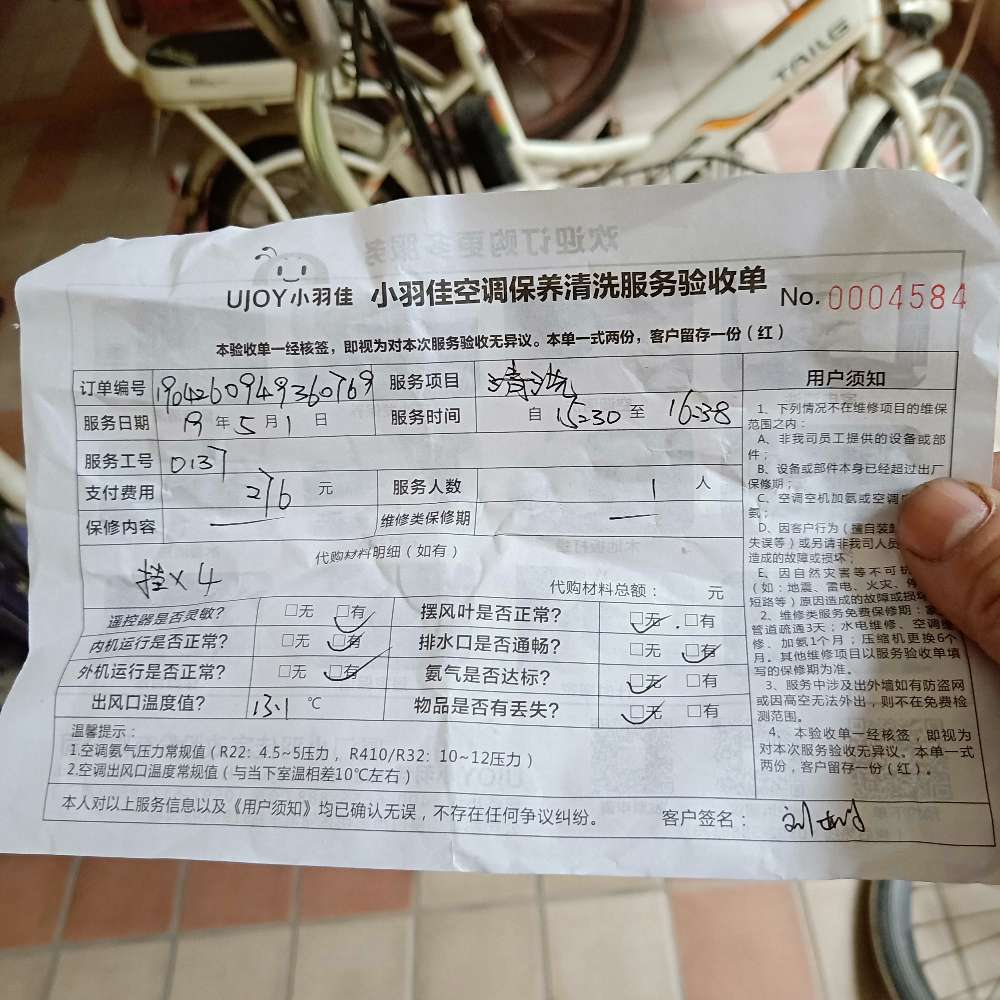 TAILG
UJOY小羽佳 小羽佳空调保养清洗服务验收单 No.0004584
本验收单一经核签，即视为对本次服务验收无异议。本单一式两份，客户留存一份（红）
订单编号 1904260949360769 服务项目 清洗
服务日期 19 年 5 月 1 日 服务时间 自 15:30 至 16:38
服务工号 0137
支付费用 276 元 服务人数 1 人
保修内容 — 维修类保修期 —
代购材料明细（如有）
挂×4
代购材料总额： 元
遥控器是否灵敏？ □无 □有 摆风叶是否正常？ □无 □有
内机运行是否正常？ □无 □有 排水口是否通畅？ □无 □有
外机运行是否正常？ □无 □有 氨气是否达标？ □无 □有
出风口温度值？ 13.1 ℃ 物品是否有丢失？ □无 □有
温馨提示：
1.空调氨气压力常规值（R22：4.5~5压力，R410/R32：10~12压力）
2.空调出风口温度常规值（与当下室温相差10℃左右）
本人对以上服务信息以及《用户须知》均已确认无误，不存在任何争议纠纷。 客户签名：
用户须知
1、下列情况不在维修项目的维保
范围之内：
A、非我司员工提供的设备或部
件；
B、设备或部件本身已经超过出厂
保修期；
C、空调空机加氨或空调
氨；
D、因客户行为（擅自装
失误等）或另请非我司人员
造成的故障或损坏；
E、因自然灾害等不可抗
（如：地震、雷电、火灾、
短路等）原因造成的故障或损坏
2、维修类服务免费保修期：
管道疏通3天；水电维修、空调维
修、加氨1个月；压缩机更换6个
月。其他维修项目以服务验收单填
写的保修期为准。
3、服务中涉及出外墙如有防盗网
或因高空无法外出，则不在免费检
测范围。
4、本验收单一经核签，即视为
对本次服务验收无异议。本单一式
两份，客户留存一份（红）。